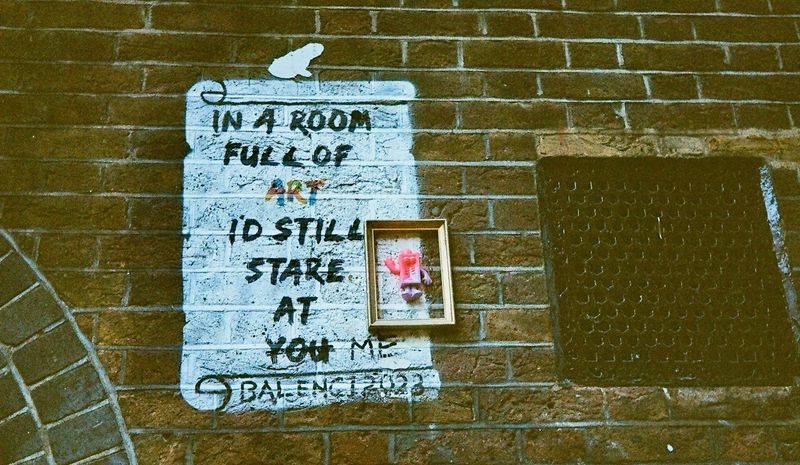 IN A ROOM
FULL OF
ART
I'D STILL
STARE
AT
YOU ME
BALENCI 2023